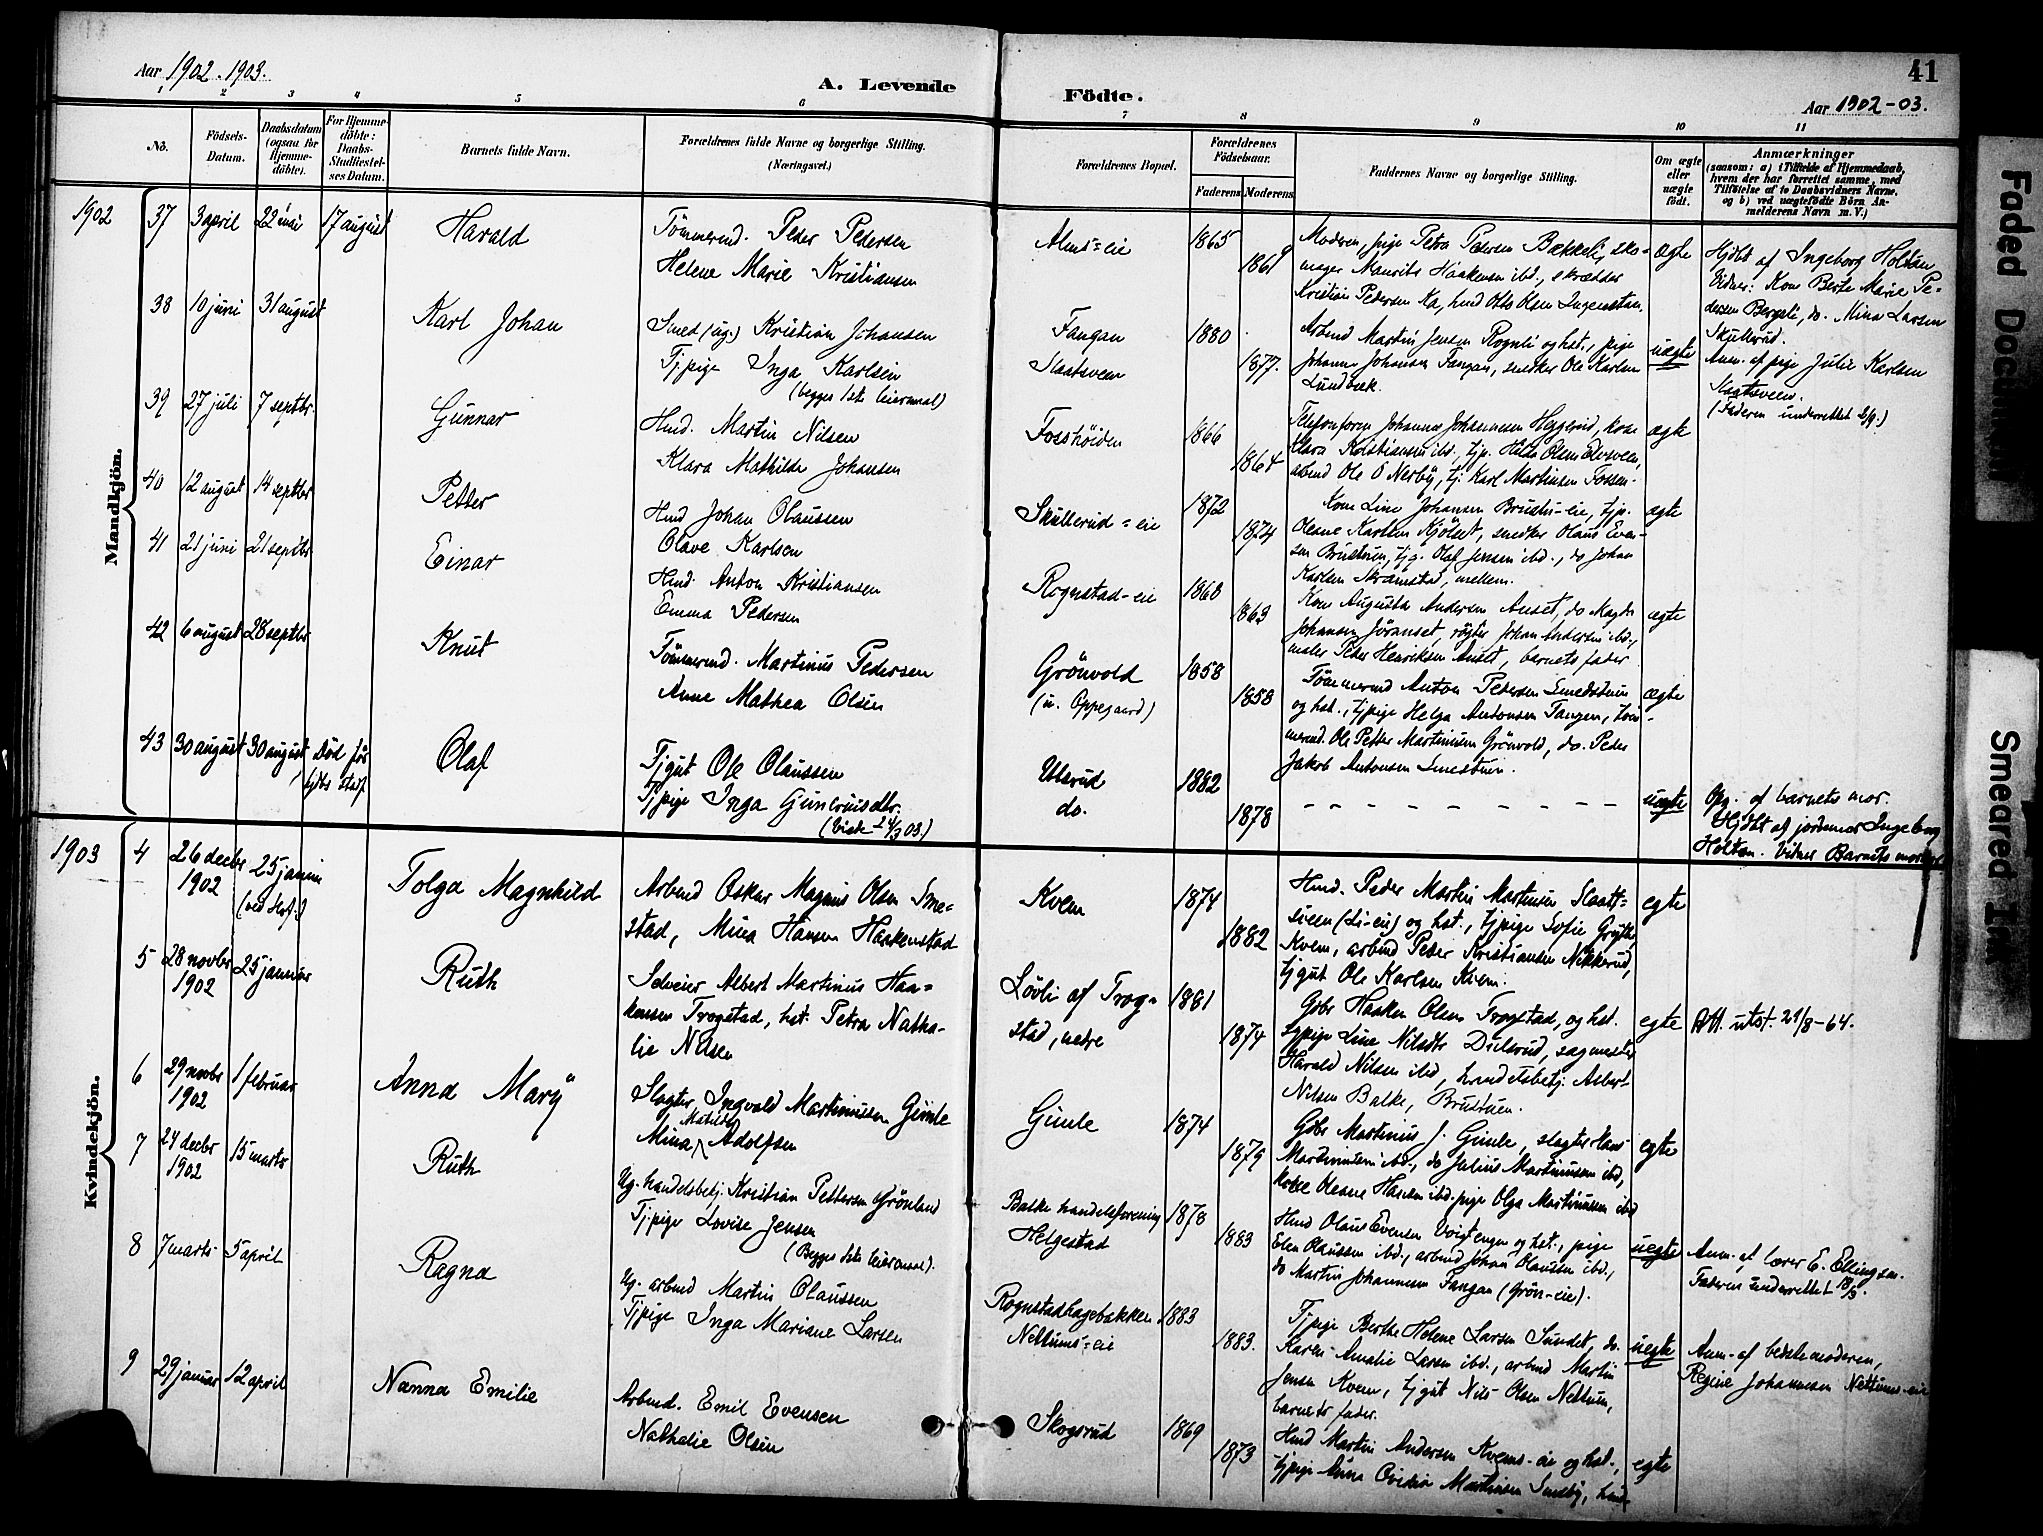 Aar 1902-1903.
A. Levende Födte.
41
Aar 1902-03.
1 2 3 4 5 6 7 8 9 10 11
No.
Födsels-Datum.
Daabsdatum (ogsaa for Hjemme-döbte).
For Hjemme-döbte: Daabs-Stadfæstel-ses Datum.
Barnets fulde Navn.
Forældrenes fulde Navne og borgerlige Stilling.
(Næringsvei.)
Forældrenes Bopæl.
Forældrenes Födselsaar.
Faderens Moderens
Faddernes Navne og borgerlige Stilling.
Om ægte eller uægte födt.
Anmærkninger
(saasom: a) i Tilfælde af Hjemmedaab,
hvem der har forrettet samme, med
Tilföielse af to Daabsvidners Navne,
og b) ved uægtefödte Börn An-
melderens Navn m. V.)
Mandkjön.
1902
37 3 april 22 mai 17 august Harald
Tömmermd. Peder Pedersen
Helene Marie Kristiansen
Alms-eie 1865
Moderen, pige Petra Pedersen Bækkeli, sko-
mager Maurits Haakensen ibd., skrædder
Kristian Pedersen
ægte
Hjdbt af Ingeborg Holtan
Vidner: Kone Berte Marie Pe-
dersen Bergeli, do. Mina Larsen
Skullerud.
38 10 juni 31 august Karl Johan
Smed (ug.) Kristian Johansen
Tjpige Inga Karlsen
(begges 1ste leiermaal)
Fangan 1880
Slaatsveen 1877.
Arbmd Martin Jensen Rognli og hst., pige
Johanne Johansen Fangan, snedker Ole Karlsen
Lundbæk.
uægte
Anm. af pige Julie Karlsen
Slaatsveen.
(Faderen underrettet 8/9.)
39 27 juli 7 septbr. Gunnar
Hmd. Martin Nilsen
Klara Mathilde Johansen
Fosshöiden 1866
1864
ægte
40 12 august 14 septbr Petter
Hmd Johan Olaussen
Olave Karlsen
Skullerud-eie 1872
1874
Kone Line Johansen Brustu-eie, tjp.
Oleane Karlsen Kjölset, snedker Olaus Even-
sen Brustuen, tjg. Olaf Jensen ibd., do Johan
Karlsen Skramstad, mellem.
ægte
41 21 juni 21 septbr Einar
Hmd. Anton Kristiansen
Emma Pedersen
Rognstad-eie 1868
1863
Kone Augusta Andersen Anset, do Magda
Johansen Jöranset, røgter Johan Andersen ibd.,
maler Peder Henriksen Anset, barnets fader
ægte
42 6 august 28 septbr Knut
Tömmermd. Martinus Pedersen
Anne Mathea Olsen
Grönvold 1858
(u. Oppegaard) 1858
Tömmermd Anton Pedersen Smedstuen
og hst., tjpige Helga Antonsen Tangen, töm-
mermd. Ole Petter Martinsen Grönvold, do. Peder
Jakob Antonsen Smestuen.
ægte
43 30 august 30 august Död før hjdbs stadf Olaf
Tjgut Ole Olaussen
Tjpige Inga Gunerusdtr.
Ulsrud 1882
do. 1878
uægte
Opg. af barnets mor.
Hjdbt af jordmor Ingeborg
Holtan. Vidner Barnets
Kvindekjön.
1903
4 26 decbr 1902 25 januar Tolga Magnhild
Arbmd Oskar Magnus Olsen Sme-
stad, Mina Hansen Haakenstad
Kvem 1874
1882
Hmd. Peder Martin Martinsen Slaatt-
sveen (Li-eie) og hst., tjpige Sofie
Kvem, arbmd Peder Kristiansen Nikkerud,
tjgut Ole Karlsen Kvem.
egte
5 28 novbr 1902 25 januar Ruth
Selveier Albert Martinus Haa-
kensen Trogstad, hst. Petra Natha-
lie Nilsen
Lövli af Trog-
stad, nedre
1881
1874
Gbr Haaken Olsen Trogstad, og hst.
sypige Line Nilsdtr Dulsrud, sagmester
Harald Nilsen ibd, handelsbetj. Albert
Nilsen Balke, Brustuen.
egte
Att. utst. 21/8-64.
6 29 novbr 1902 1 februar Anna Marÿ
Slagter Ingvald Martinussen Gimle
Mina Matilde Adolfsen
Gimle 1874
1879
Gbr Martinus J. Gimle, slagter Hans
Martinussen ibd., do Julius Martinussen ibd,
kone Oleane Hansen ibd. pige Olga Martinussen ibd
egte
7 24 decbr 1902 15 marts Ruth
Ug. handelsbetj. Kristian Pettersen Grönlund
Tjpige Lovise Jensen
(Begges 1ste leiermaal).
Balke handelsforening 1878
Helgestad 1883
Hmd Olaus Evensen og hst., pige
Elen Olaussen ibd., arbmd Johan Olaussen ibd.,
do Martin Johannesen Fangan (Grön-eie).
uegte
Anm. af lærer E. Ellingsen.
Faderen underrettet 18/3.
8 7 marts 5 april Ragna
Ug. arbmd Martin Olaussen
Tjpige Inga Mariane Larsen
Rognstadhagebakken 1883
Nettums-eie 1883.
Tjpige Berthe Helene Larsen Sundet, do.
Karen Amalie Larsen ibd., arbmd Martin
Jensen Kvem, tjgut Nils Olsen Nettum,
barnets fader.
uegte
Anm. af bedstemoderen,
Regine Johannesen Nettums-eie
9 29 januar 12 april Nanna Emilie
Arbmd. Emil Evensen
Nathalie Olsen
Skogsrud 1869
1873
Hmd Martin Andersen Kvems-eie og hst.,
egte
Faded Document
Smeared Ink